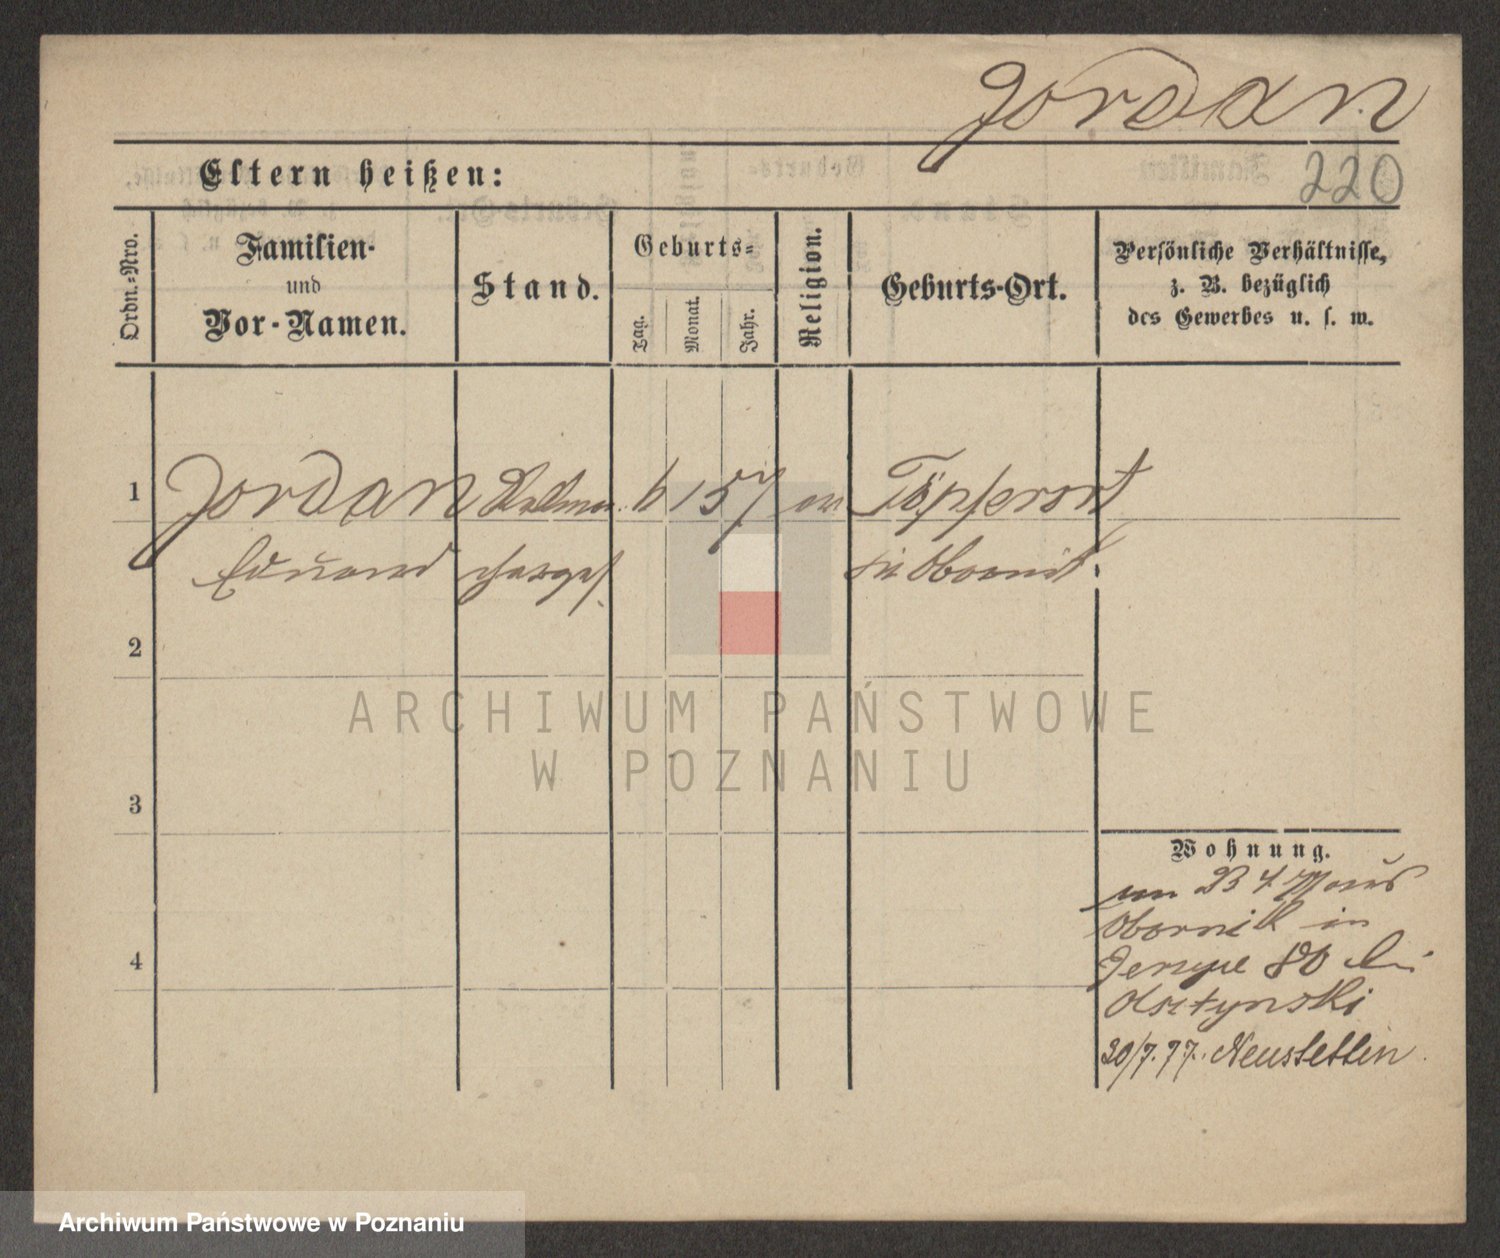 Jordan
220
Eltern heißen:
Ordn.-Nro.
Familien-
und
Vor-Namen.
Stand.
Geburts-
Tag.
Monat.
Jahr.
Religion.
Geburts-Ort.
Persönliche Verhältnisse,
z. B. bezüglich
des Gewerbes u. s. w.
1 Jordan 6 1 57 Töpferort
Eduard
2
3
4
ARCHIWUM PAŃSTWOWE
W POZNANIU
Wohnung.
Obornik in
Jersyce 80 bei
Olsztynski
30/7.77. Neustettin
Archiwum Państwowe w Poznaniu